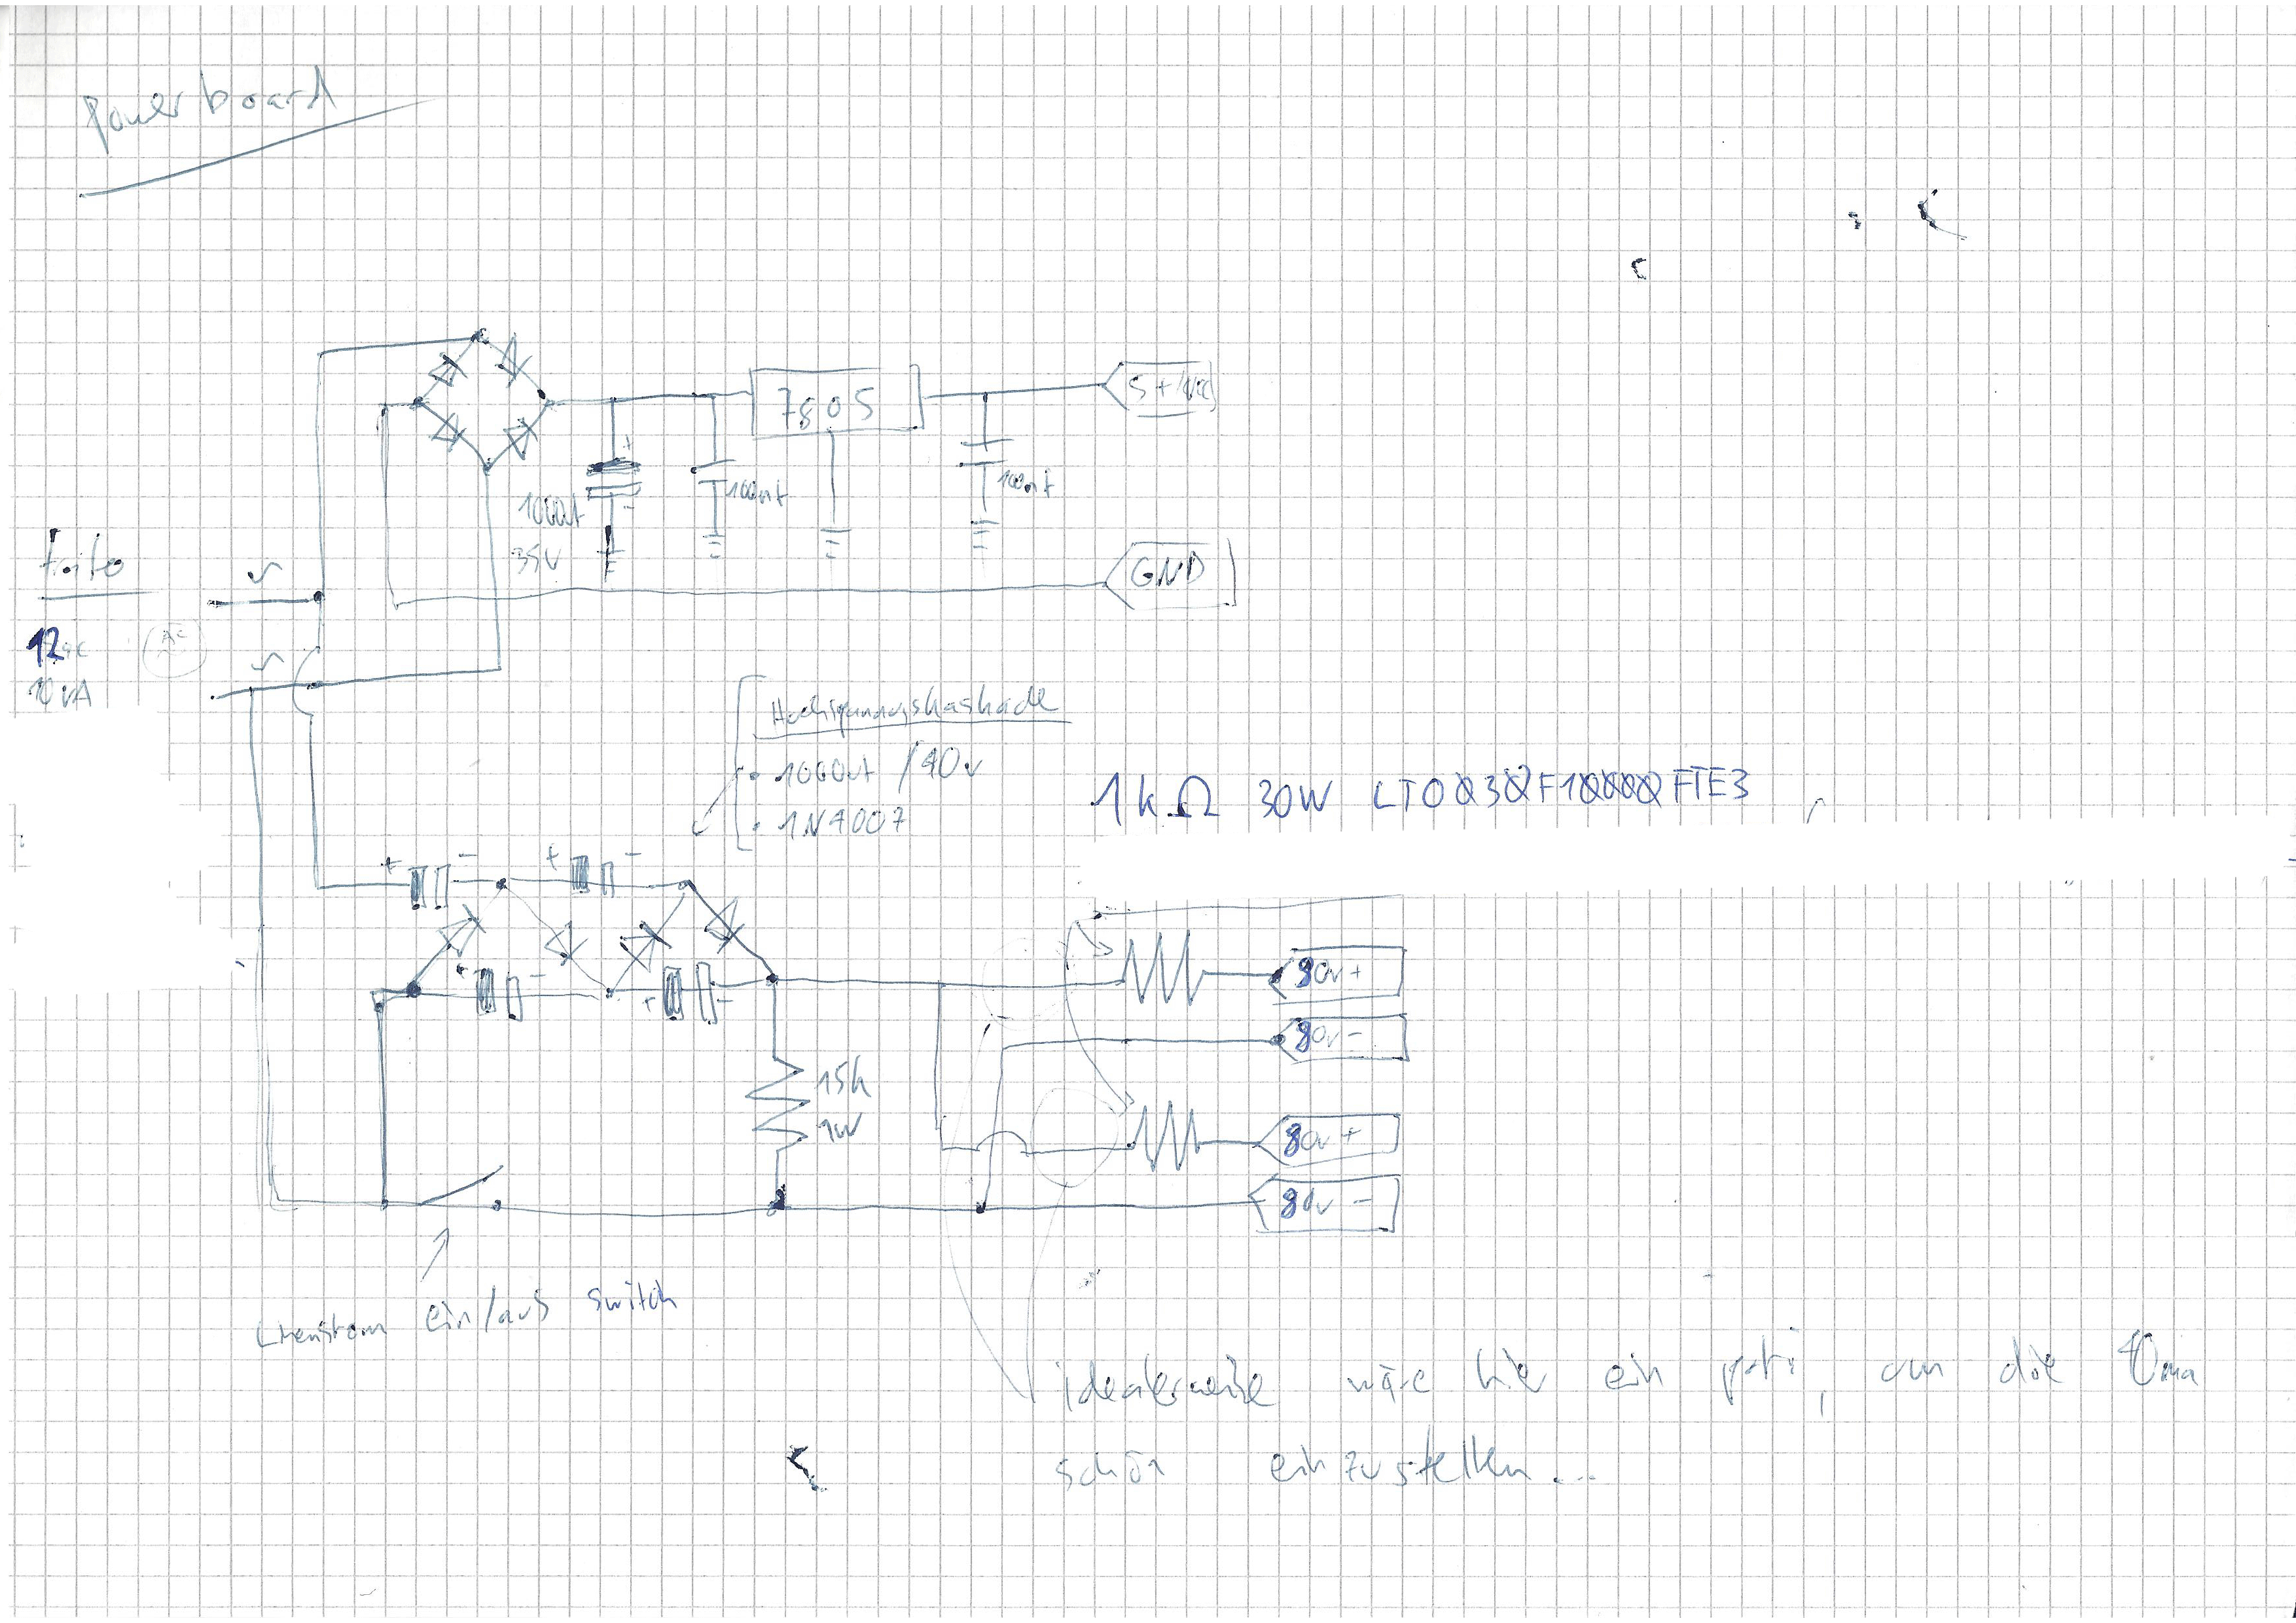 Powerboard
7805
5+/Vcc
100nf
100nf
1000uf
35V
GND
trafo
12ac
AC
10VA
Hochspannungskaskade
• 1000uf /40v
• 1N4007
1kΩ 30W LTO030F10000FTE3
+ - + -
+ - + -
80v+
80v-
15k
1W
80v+
80v-
ein/aus switch
idealerweise wäre hier ein poti, um die
schön einzustellen...